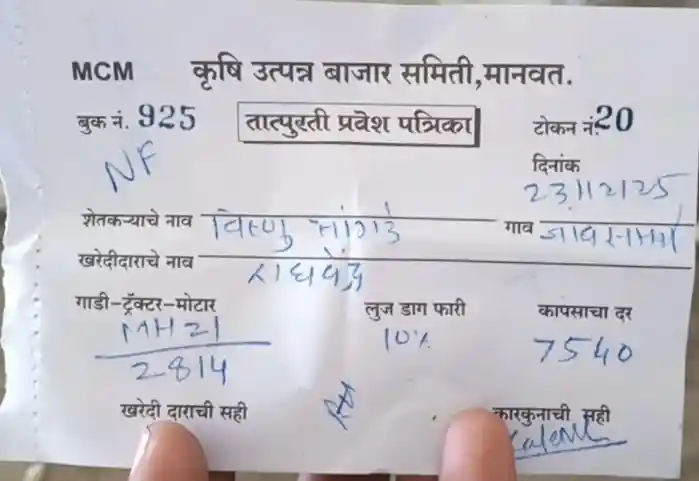 MCM कृषि उत्पन्न बाजार समिती,मानवत.
बुक नं. 925 तात्पुरती प्रवेश पत्रिका टोकन नं. 20
NF
दिनांक
23/12/25
शेतकऱ्याचे नाव विष्णु गाव
खरेदीदाराचे नाव राघवेंद्र
गाडी-ट्रॅक्टर-मोटार लुज डाग फारी कापसाचा दर
MH21 10% 7540
2814
खरेदी दाराची सही कारकुनाची सही